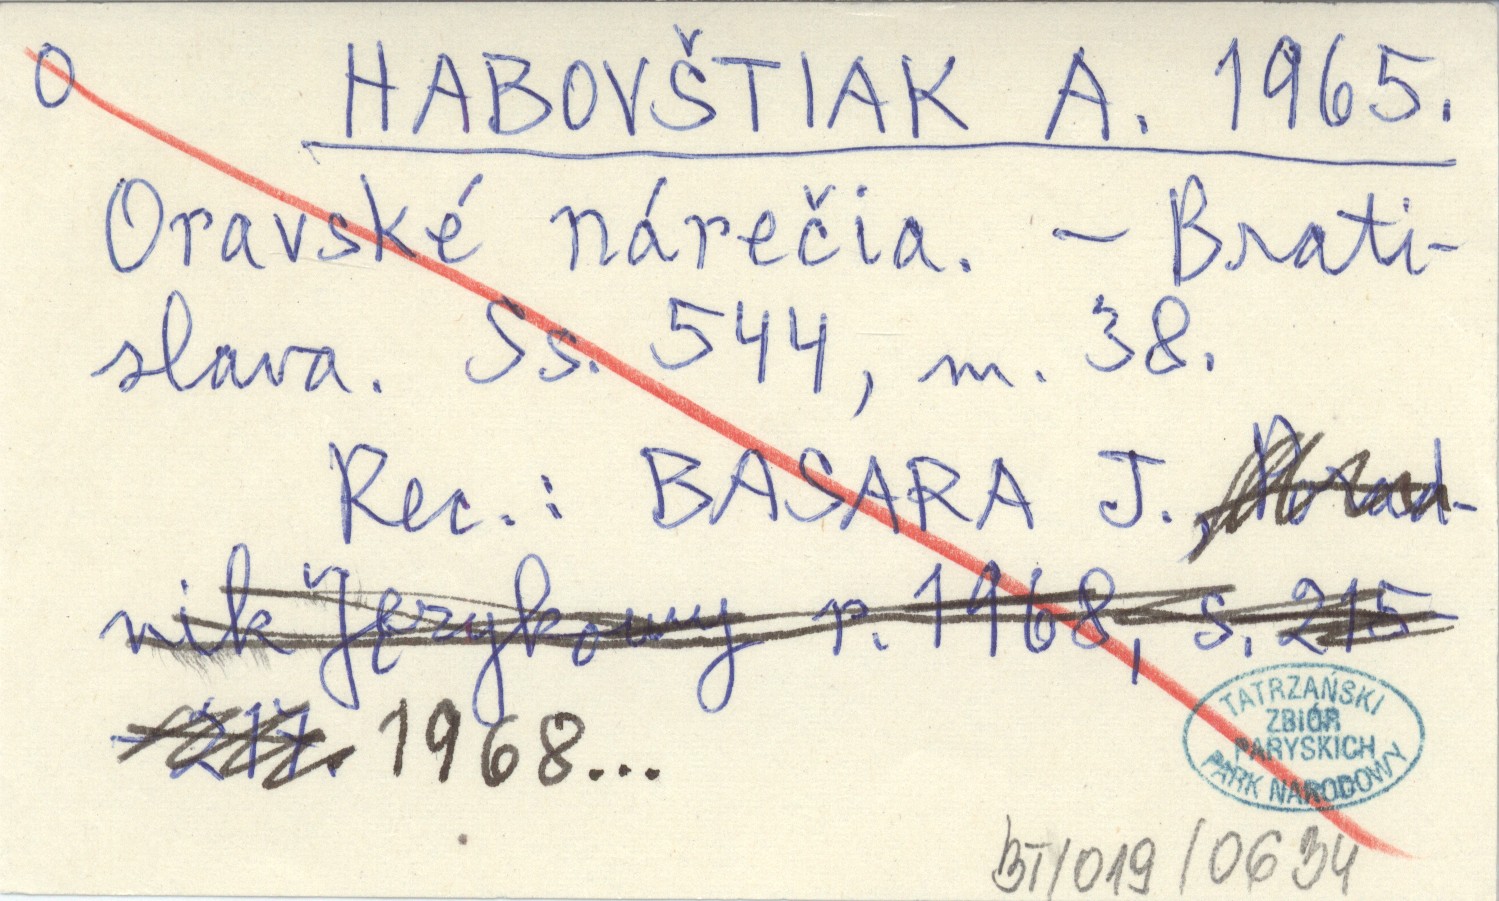 O HABOVŠTIAK A. 1965.
Oravské nárečia. – Brati-
slava. Ss. 544, m. 38.
Rec.: BASARA J., Porad-
nik Językowy r. 1968, s. 215-
- 217. 1968...
TATRZAŃSKI
ZBIÓR
PARYSKICH
PARK NARODOWY
BT/019/0634